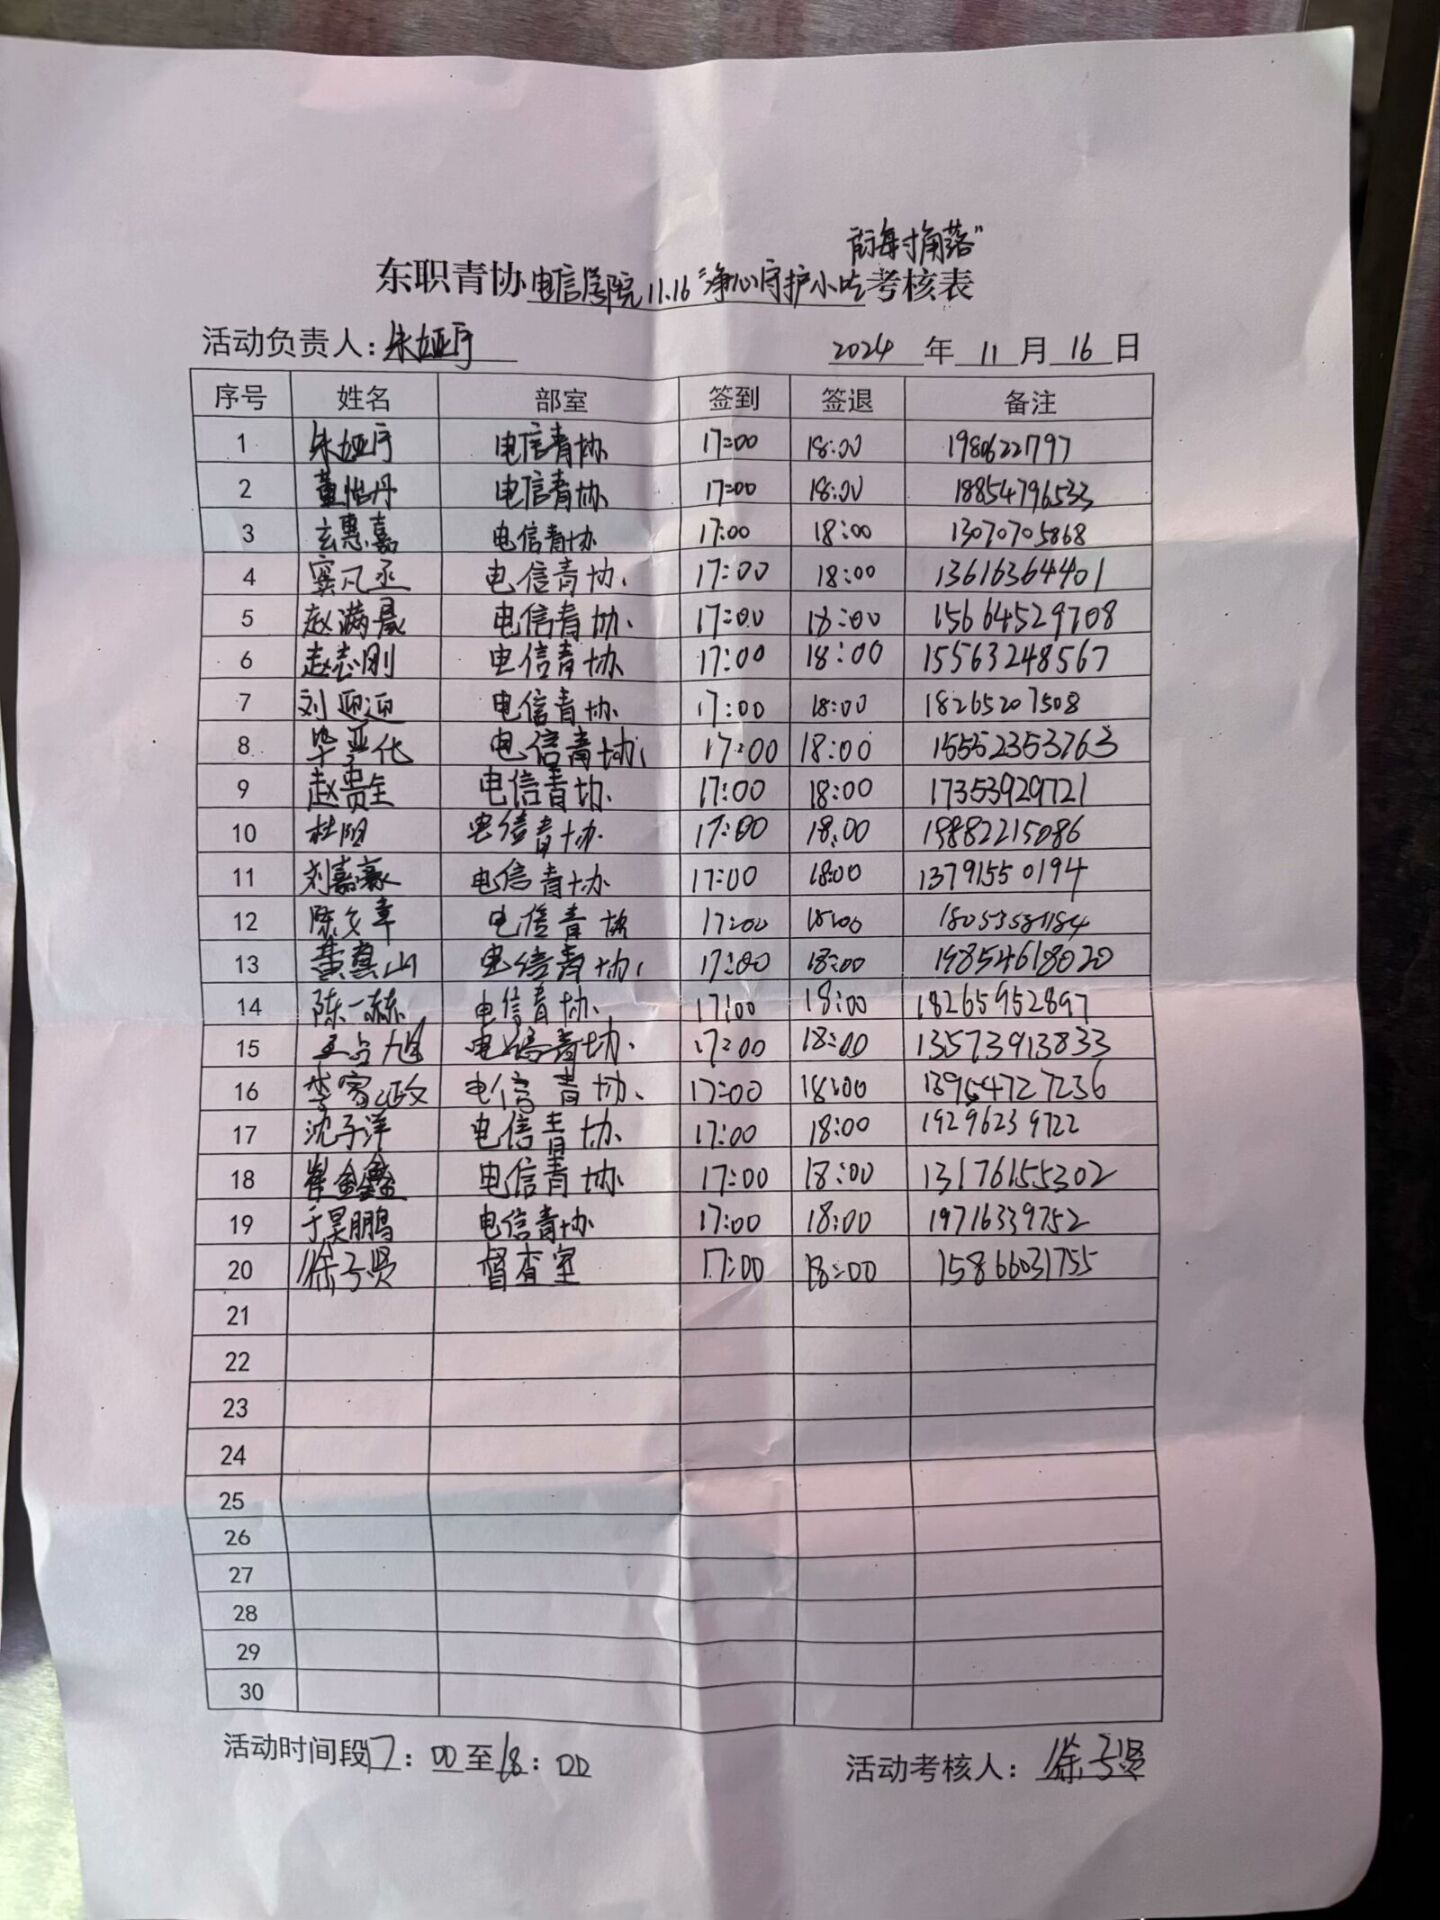 的每寸角落”
东职青协电信学院11.16“净心守护小吃考核表
活动负责人：朱娅宁 2024年11月16日
序号 姓名 部室 签到 签退 备注
1 朱娅宁 电信青协 17:00 18:00 1980622797
2 董怡丹 电信青协 17:00 18:00 18854796533
3 玄惠嘉 电信青协 17:00 18:00 13070705868
4 窦凡丞 电信青协 17:00 18:00 13616364401
5 赵满晟 电信青协 17:00 18:00 15664529708
6 赵志刚 电信青协 17:00 18:00 15563248567
7 刘迎迎 电信青协 17:00 18:00 18265207508
8 毕亚化 电信青协 17:00 18:00 15552353763
9 赵贵全 电信青协 17:00 18:00 17353929721
10 杜阳 电信青协 17:00 18:00 19882215086
11 刘嘉豪 电信青协 17:00 18:00 13791550194
12 陈文章 电信青协 17:00 18:00
13 黄真山 电信青协 17:00 18:00 19854618020
14 陈一赫 电信青协 17:00 18:00 18265952897
15 王占旭 电信青协 17:00 18:00 13573913833
16 李家政 电信青协 17:00 18:00 13954727236
17 沈子洋 电信青协 17:00 18:00 19296239722
18 崔金鑫 电信青协 17:00 18:00 13176155302
19 于昊鹏 电信青协 17:00 18:00 19716339752
20 徐子贤 督查室 17:00 18:00 15866031755
21
22
23
24
25
26
27
28
29
30
活动时间段17：00至18：00 活动考核人：徐子贤